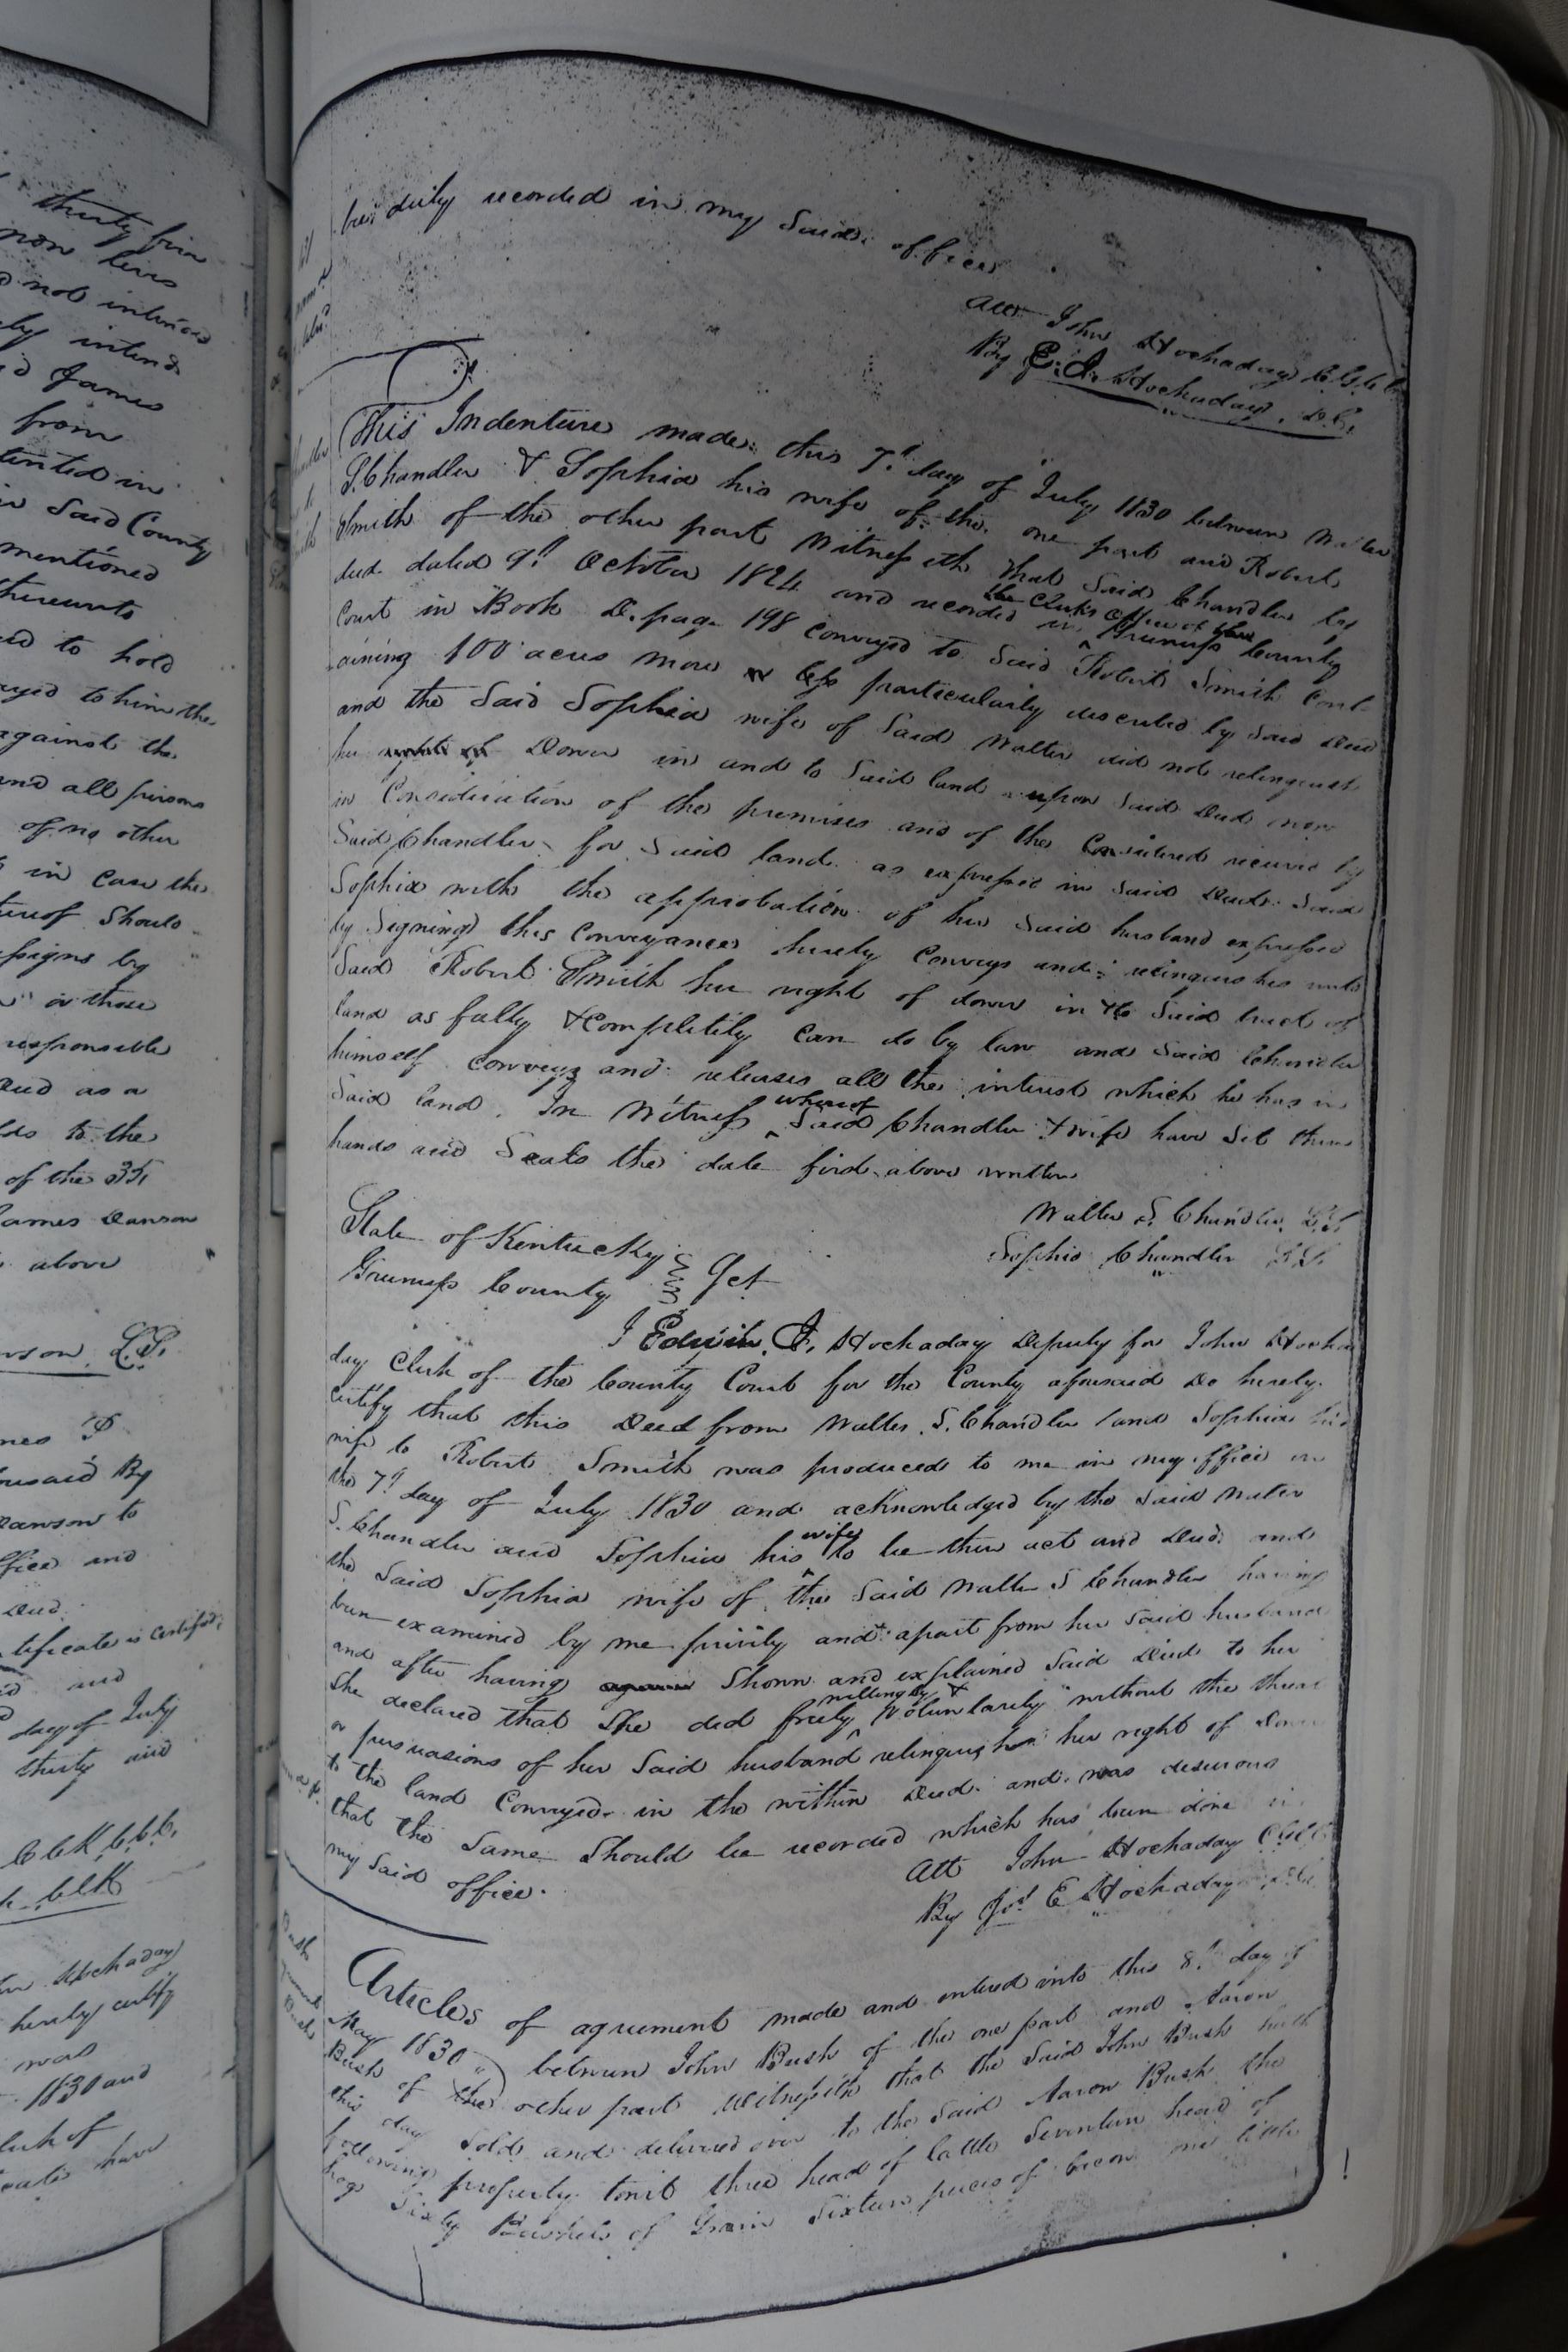 thirty five
non lives
not intered
ly intend
d James
from
tented in
in Said County
mentioned
thereunto
ed to hold
yed to him the
against the
and all persons
of no other
in case the
thereof Should
ssigns by
or those
responsible
Deed as a
lds to the
of the 35th
James Dawson
above
rson L.S.
mes P
foresaid By
Dawson to
ffice and
Deed
tificate is Certified
and
day of July
thirty and
Clk C.C.C.
Clk
Hockaday
hereby certify
was
1830 and
lerk of
cate have
be duly recorded in my Said office
Att John Hockaday C.G.C.C.
By E. J. Hockaday. D.C.
This Indenture made this 7th day of July 1830 between Walter
S. Chandler & Sophia his wife of the one part and Robert
Smith of the other part Witnesseth that Said Chandler by
deed dated 9th October 1824 and recorded in the Clerks office of the Greenup County
Court in Book D. page 198 conveyed to Said Robert Smith Cont-
aining 100 acres more or less particularly described by Said Deed
and the Said Sophia wife of Said Walter did not relinquish
her right of Dower in and to Said land upon Said Deed now
in Consideration of the premises and of the Considered received by
Said Chandler for Said land as expressed in Said Deed Said
Sophia with the approbation of her Said husband expressed
by Signing this Conveyance hereby Conveys and relinquishes unto
Said Robert Smith her right of dower in to Said tract of
land as fully & completely can do by law and Said Chandler
himself Conveys and releases all the interest which he has in
Said land. In Witness whereof Said Chandler & wife have Set their
hands and Seals the date first above written
Walter S. Chandler L.S.
Sophia Chandler L.S.
State of Kentucky
Greenup County } Sct
I Edwin J. Hockaday Deputy for John Hocka
day Clerk of the County Court for the County aforesaid Do hereby
certify that this Deed from Walter S. Chandler and Sophia his
wife to Robert Smith was produced to me in my office on
the 7th day of July 1830 and acknowledged by the Said Walter
S. Chandler and Sophia his wife to be their act and Deed and
the Said Sophia wife of the Said Walter S Chandler having
been examined by me privily and apart from her Said husband
and after having again Shown and explained Said Deed to her
She declared that She did freely willingly & Voluntarily without the threat
or persuasions of her Said husband relinquish her right of Dower
to the land Conveyed in the within Deed and was desirous
that the Same Should be recorded which has been done in
my Said office.
Att John Hockaday C.G.C.C.
By Jos E Hockaday D.C.
Bush
Bush
Articles of agreement made and entered into this 8th day of
May 1830 between John Bush of the one part and Aaron
Bush of the other part Witnesseth that the Said John Bush hath
this day Sold and delivered over to the Said Aaron Bush the
following property towit three head of Cattle Seventeen head of
hogs Sixty Bushels of Grain Sixteen pieces of bacon one little